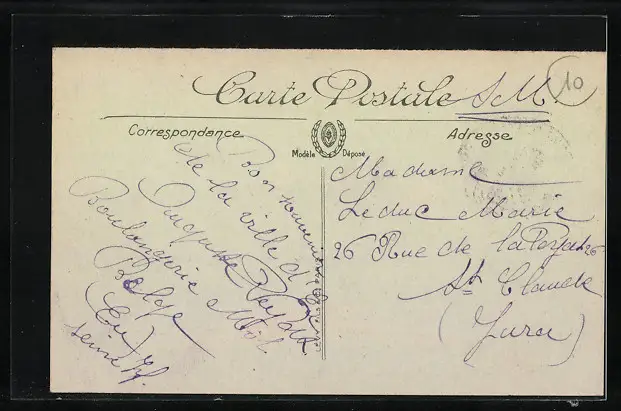 Carte Postale S M
10
Correspondance
Modèle Déposé
Adresse
Bon souvenir
de la ville d'Eu
Auguste
Boulangerie
Belge
(Eu)
Seine If.
Madame
Leduc Marie
26 Rue de la 26
St Claude
(Jura)